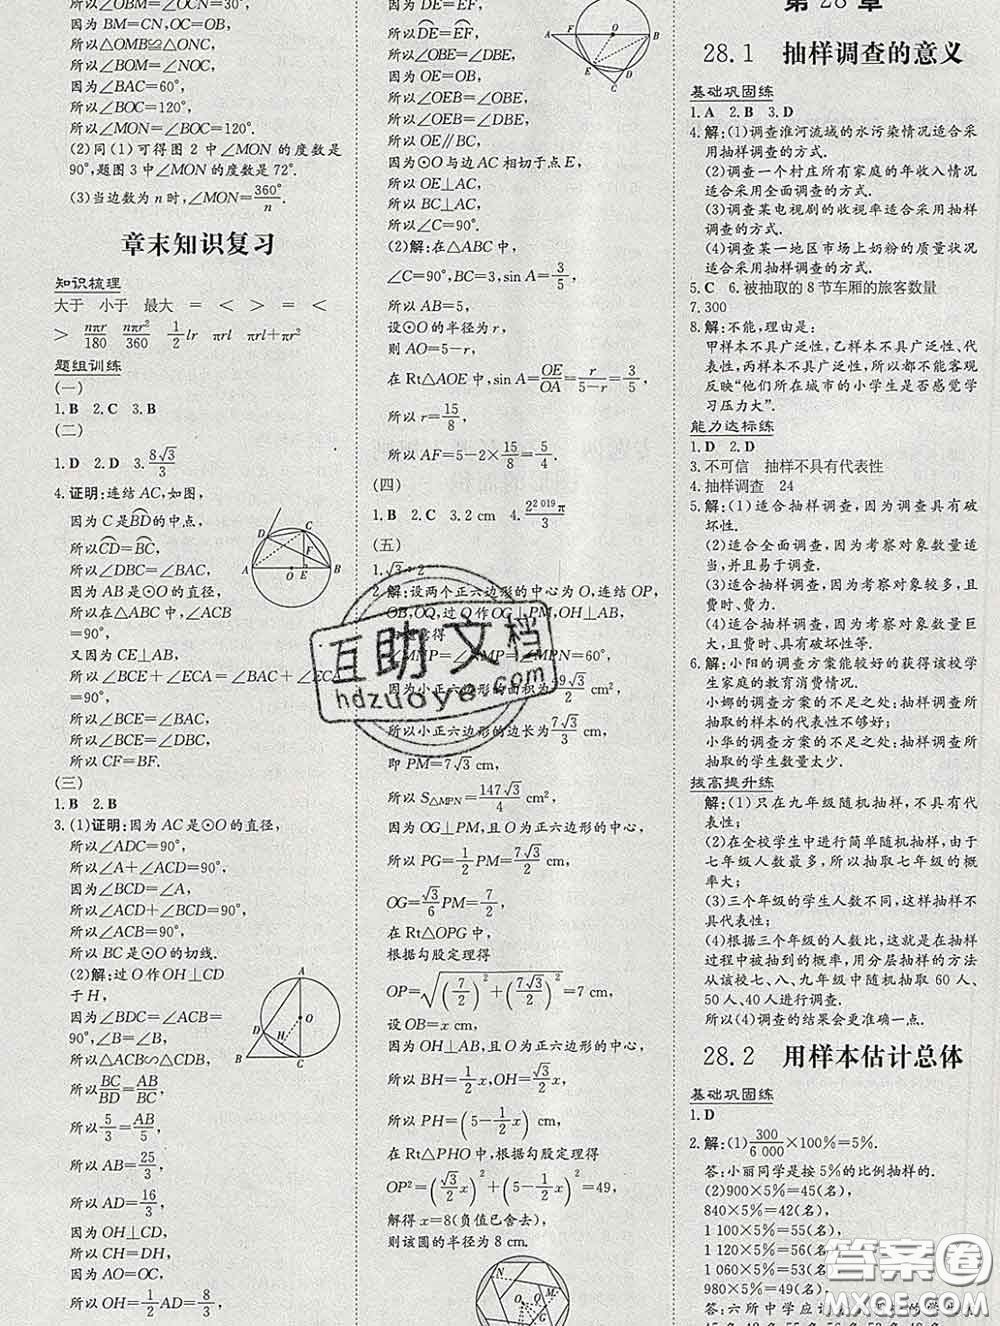 所以∠OBM=∠OCN=30°,
因为 BM=CN,OB=OC,
所以△OMB≌△ONC,
所以∠BOM=∠NOC.
因为∠BAC=60°,
所以∠BOC=120°,
所以∠MON=∠BOC=120°.
(2)同(1)可得图2中∠MON的度数是
90°,题图3中∠MON的度数是72°.
(3)当边数为n时,∠MON=360°/n.
章末知识复习
知识梳理
大于 小于 最大 = < > = <
> nπr/180 nπr²/360 1/2 lr πrl πrl+πr²
题组训练
(一)
1.B 2.C 3.B
(二)
1.D 2.D 3.8√3/3
4.证明:连结AC,如图,
因为C是BD的中点,
所以CD=BC,
所以∠DBC=∠BAC,
因为AB是⊙O的直径,
所以在△ABC中,∠ACB
=90°,
又因为CE⊥AB,
所以∠BCE+∠ECA=∠BAC+∠ECA=90°,
所以∠BCE=∠BAC,
所以∠BCE=∠DBC,
所以CF=BF.
(三)
1.B 2.B
3.(1)证明:因为AC是⊙O的直径,
所以∠ADC=90°,
所以∠A+∠ACD=90°,
因为∠BCD=∠A,
所以∠ACD+∠BCD=90°,
所以∠ACB=90°,
所以BC是⊙O的切线.
(2)解:过O作OH⊥CD
于H,
因为∠BDC=∠ACB=
90°,∠B=∠B,
所以△ACB∽△CDB,
所以BC/BD=AB/BC,
所以5/3=AB/5,
所以AB=25/3,
所以AD=16/3,
因为OH⊥CD,
所以CH=DH,
因为AO=OC,
所以OH=1/2 AD=8/3,
因为DE=EF,
所以DE=EF,
所以∠OBE=∠DBE,
因为OB=OE,
所以∠OEB=∠OBE,
所以∠OEB=∠DBE,
所以OE∥BC,
因为⊙O与边AC相切于点E,
所以OE⊥AC,
所以BC⊥AC,
所以∠C=90°.
(2)解:在△ABC中,
∠C=90°,BC=3,sin A=3/5,
所以AB=5,
设⊙O的半径为r,
则AO=5-r,
在Rt△AOE中,sin A=OE/OA=r/(5-r)=3/5,
所以r=15/8,
所以AF=5-2×15/8=5/4.
(四)
1.B 2.C 3.2 cm 4.2^2019π/3
(五)
2.解:设两个正六边形的中心为O,连结OP,
OB,过O作OG⊥PM,OH⊥AB,
=∠MPN=60°,
因为小正六边形的面积为 cm²,
所以小正六边形的边长为7√3/3 cm,
即PM=7√3 cm,
所以S△MPN=147√3/4 cm²,
因为OG⊥PM,且O为正六边形的中心,
所以PG=1/2 PM=7√3/2 cm,
OG=√3/6 PM=7/2,
在Rt△OPG中,
根据勾股定理得
OP=√((7/2)²+(7√3/2)²)=7 cm,
设OB=x cm,
因为OH⊥AB,且O为正六边形的中心,
所以BH=1/2 x,OH=√3/2 x,
所以PH=(5-1/2 x) cm,
在Rt△PHO中,根据勾股定理得
OP²=(√3/2 x)²+(5-1/2 x)²=49,
解得x=8(负值已舍去),
则该圆的半径为8 cm.
第28章
28.1 抽样调查的意义
基础巩固练
1.A 2.B 3.D
4.解:(1)调查淮河流域的水污染情况适合采
用抽样调查的方式.
(2)调查一个村庄所有家庭的年收入情况
适合采用全面调查的方式.
(3)调查某电视剧的收视率适合采用抽样
调查的方式.
(4)调查某一地区市场上奶粉的质量状况
适合采用抽样调查的方式.
5.C 6.被抽取的8节车厢的旅客数量
7.300
8.解:不能,理由是:
甲样本不具广泛性,乙样本不具广泛性、代
表性,丙样本不具广泛性,所以都不能客观
反映“他们所在城市的小学生是否感觉学
习压力大”.
能力达标练
1.D 2.D
3.不可信 抽样不具有代表性
4.抽样调查 24
5.解:(1)适合抽样调查,因为调查具有破
坏性.
(2)适合全面调查,因为考察对象数量适
当,并且易于调查.
(3)适合抽样调查,因为考察对象较多,且
费时、费力.
(4)适合抽样调查,因为考察对象数量巨
大,且具有破坏性等.
6.解:小阳的调查方案能较好的获得该校学
生家庭的教育消费情况.
小娜的调查方案的不足之处:抽样调查所
抽取的样本的代表性不够好;
小华的调查方案的不足之处:抽样调查所
抽取的学生数量太少.
拔高提升练
解:(1)只在九年级随机抽样,不具有代
表性;
(2)在全校学生中进行简单随机抽样,由于
七年级人数最多,所以抽取七年级的概
率大;
(3)三个年级的学生人数不同,这样抽样不
具代表性;
(4)根据三个年级的人数比,这就是在抽样
过程中被抽到的概率,用分层抽样的方法
从该校七、八、九年级中随机抽取60人、
50人、40人进行调查.
所以(4)调查的结果会更准确一点.
28.2 用样本估计总体
基础巩固练
1.D
2.解:(1)300/6 000×100%=5%.
答:小丽同学是按5%的比例抽样的.
(2)900×5%=45(名),
840×5%=42(名),
1 100×5%=55(名),
1 120×5%=56(名),
1 060×5%=53(名),
980×5%=49(名),
答:六所中学应
互助文档
hdzuoye.com
答案圈
MXQE.COM